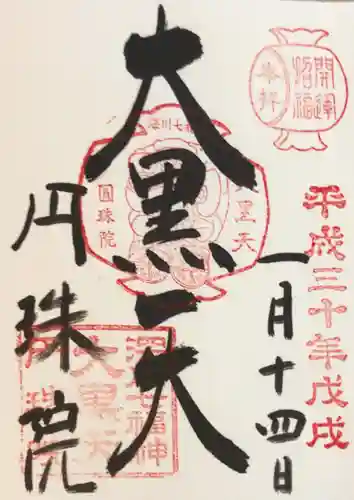 開運
招福
奉拝
平成三十年戊戌
一月十四日
大黒天
円珠院
黒天
圓珠院
深川七福神
大黒天
円珠院